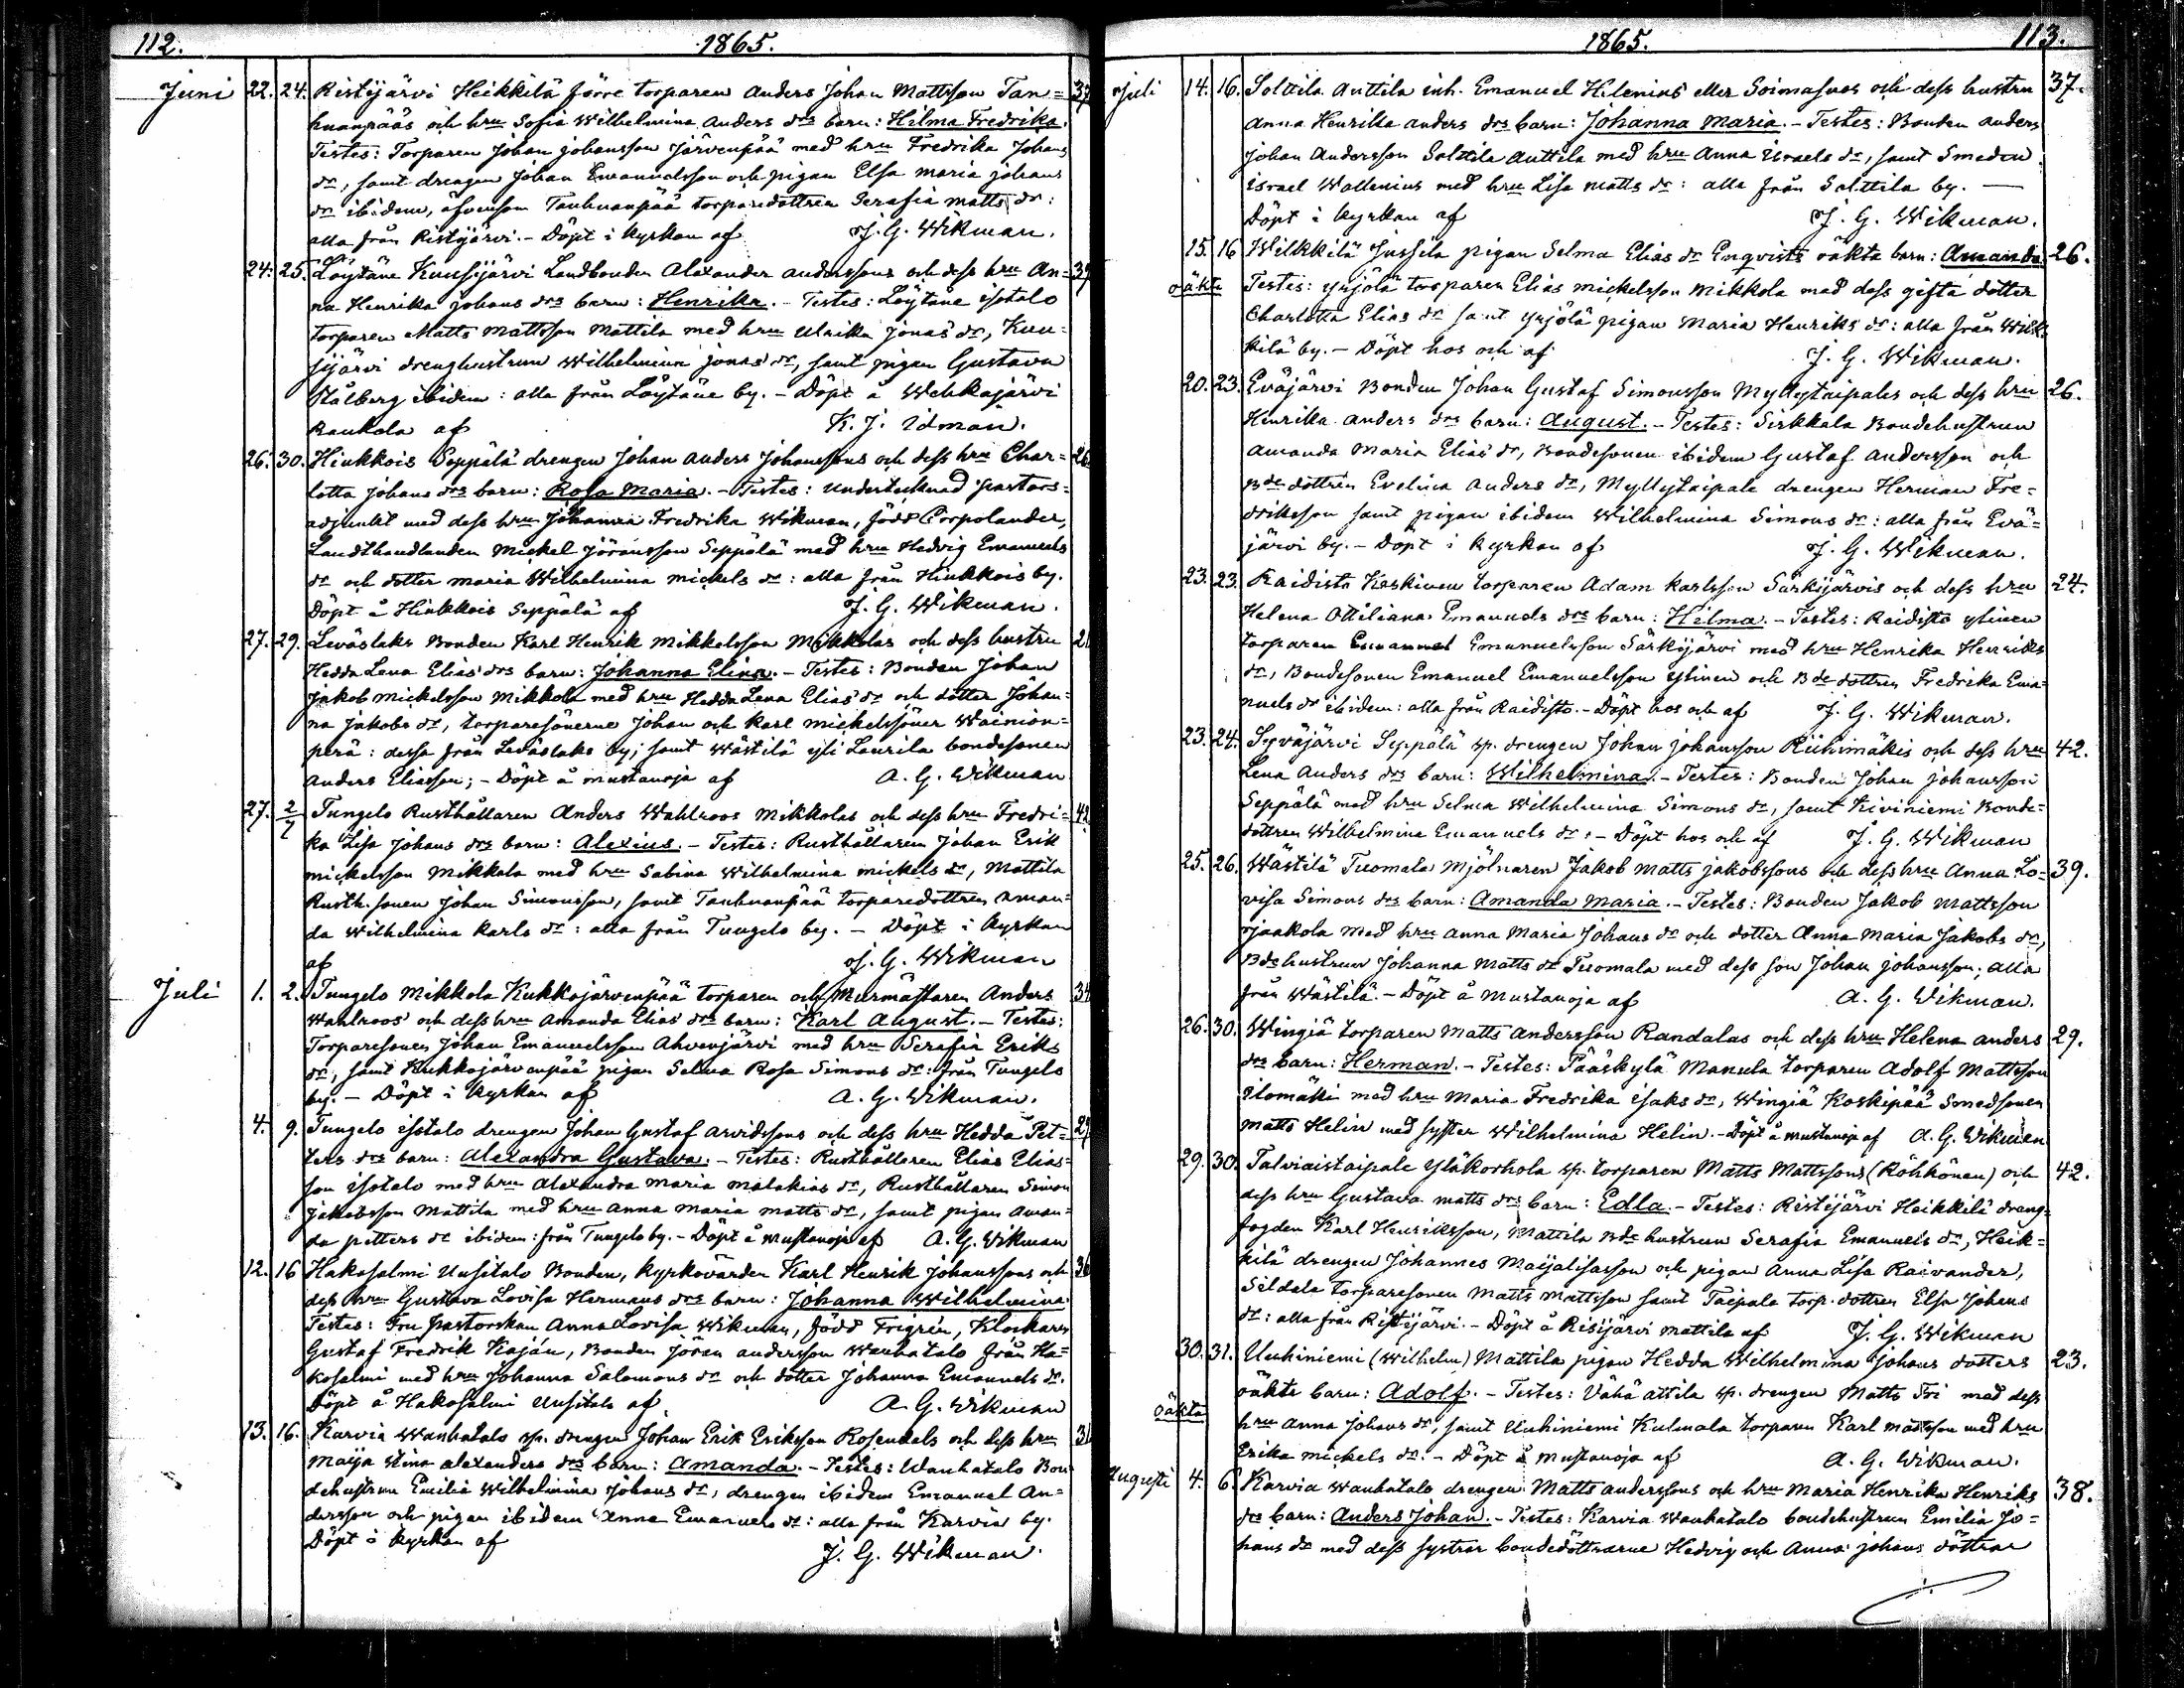 112. 1865.
Juni 22. 24. Ristijärvi Heikkilä förre torparen Anders Johan Mattsson Tan= 37
huanpääs och hru Sofia Wilhelmina Anders drs barn: Hilma Fredrika.
Testes: Torparen Johan Johansson Järvenpää med hru Fredrika Johans
dr, samt drengen Johan Emanuelsson och pigan Elsa Maria Johans
dr ibidem, äfvensom Tanhuanpää torparedottren Serafia Matts dr:
alla från Ristijärvi. - Döpt i kyrkan af J. G. Wikman.
24. 25. Löytäne Kuusijärvi Landbonden Alexander Anderssons och dess hru An= 39
na Henrika Johans drs barn: Henrika. - Testes: Löytäne Isotalo
torparen Matts Mattsson Mattila med hru Ulrika Jonas dr, Kuu=
sijärvi drenghustrun Wilhelmina Jonas dr, samt pigan Gustava
Stålberg ibidem: alla från Löytäne by. - Döpt å Wehkajärvi
Raukola af K. J. Idman.
26. 30. Hinkkois Seppälä drengen Johan Anders Johanssons och dess hru Char= 26
lotta Johans drs barn: Rosa Maria. - Testes: Undertecknad pastors=
adjunkt med dess hru Johanna Fredrika Wikman, född Corpolander,
Landthandlanden Mickel Jöransson Seppälä med hru Hedvig Emanuels
dr och dotter Maria Wilhelmina Mickels dr: alla från Hinkkois by.
Döpt å Hinkkois Seppälä af J. G. Wikman.
27. 29. Leväslaks Bonden Karl Henrik Mikkelsson Mikkolas och dess hustru
Hedda Lena Elias drs barn: Johanna Elina. - Testes: Bonden Johan
Jakob Mickelsson Mikkola med hru Hedda Lena Elias dr och dotter Johan=
na Jakobs dr, torparesönerne Johan och Karl Mickelssöner Wainion=
perä: dessa från Leväslaks by; samt Wästilä Yli Laurila bondesonen
Anders Eliasson; - Döpt å Mustanoja af A. G. Wikman
27. 2/7 Tungelo Rusthållaren Anders Wahlroos Mikkolas och dess hru Fredri= 42
ka Lisa Johans drs barn: Alexius. - Testes: Rusthållaren Johan Erik
Mickelsson Mikkola med hru Sabina Wilhelmina Mickels dr, Mattila
Rusth. sonen Johan Simonsson, samt Tanhuanpää torparedottren Aman=
da Wilhelmina Karls dr: alla från Tungelo by. - Döpt i kyrkan
af J. G. Wikman
Juli 1. 2. Tungelo Mikkola Kukkojärvenpää torparen och Murmästaren Anders 34
Wahlroos och dess hru Amanda Elias drs barn: Karl August. - Testes:
Torparesonen Johan Emanuelsson Ahvenjärvi med hru Serafia Eriks
dr, samt Kukkojärvenpää pigan Selma Rosa Simons dr: från Tungelo
by. - Döpt i kyrkan af A. G. Wikman.
4. 9. Tungelo Isotalo drengen Johan Gustaf Arvidssons och dess hru Hedda Pet= 29
ters drs barn: Alexandra Gustava. - Testes: Rusthållaren Elias Elias=
son Isotalo med hru Alexandra Maria Malakias dr, Rusthållaren Simon
Jakobsson Mattila med hru Anna Maria Matts dr, samt pigan Aman=
da Petters dr ibidem: från Tungelo by. - Döpt å Mustanoja af A. G. Wikman
12. 16 Hakosalmi Uusitalo Bonden, kyrkovärden Karl Henrik Johanssons och 36
dess hru Gustava Lovisa Hermans drs barn: Johanna Wilhelmina
Testes: Fru Pastorskan Anna Lovisa Wikman, född Frigrén, Klockaren
Gustaf Fredrik Kaján, Bonden Jöran Andersson Wanhatalo från Ha=
kosalmi med hru Johanna Salomons dr och dotter Johanna Emanuels dr.
Döpt å Hakosalmi Uusitalo af A. G. Wikman
13. 16. Karvia Wanhatalo sp. drengen Johan Erik Eriksson Rosendals och dess hru
Maija Stina Alexanders drs barn: Amanda. - Testes: Wanhatalo Bon
dehustrun Emilia Wilhelmina Johans dr, drengen ibidem Emanuel An=
dersson och pigan ibidem Anna Emanuels dr: alla från Karvia by.
Döpt i kyrkan af J. G. Wikman.
1865. 113.
Juli 14. 16. Solttila Anttila inh. Emanuel Hilenius eller Soimasuos och dess hustru 37.
Anna Henrika Anders drs barn: Johanna Maria. - Testes: Bonden Anders
Johan Andersson Solttila Anttila med hru Anna Israels dr, samt Smeden
Israel Wallenius med hru Lisa Matts dr: alla från Solttila by. —
Döpt i kyrkan af J. G. Wikman.
15. 16 Wilkkilä Jussila pigan Selma Elias dr Enqvists oäkta barn: Amanda 26.
oäkta Testes: Yrjölä torparen Elias Mickelsson Mikkola med dess gifta dotter
Charlotta Elias dr samt Yrjölä pigan Maria Henriks dr: alla från Wilk
kilä by. - Döpt hos och af J. G. Wikman.
20. 23. Eväjärvi Bonden Johan Gustaf Simonsson Myllytaipales och dess hru 26.
Henrika Anders drs barn: August. - Testes: Sirkkala Bondehustrun
Amanda Maria Elias dr, Bondesonen ibidem Gustaf Andersson och
Bde dottren Evelina Anders dr, Myllytaipale drengen Herman Fre=
driksson samt pigan ibidem Wilhelmina Simons dr: alla från Evä=
järvi by. - Döpt i kyrkan af J. G. Wikman.
23. 23. Raidisto Keskinen torparen Adam Karlsson Särkijärvis och dess hru 24.
Helena Ottiliana Emanuels drs barn: Hilma. - Testes: Raidisto Ylinen
torparen Emanuel Emanuelsson Särkijärvi med hru Henrika Henriks
dr, Bondesonen Emanuel Emanuelsson Ylinen och Bde dottren Fredrika Ema=
nuels dr ibidem: alla från Raidisto. - Döpt hos och af J. G. Wikman.
23. 24. Syväjärvi Seppälä sp. drengen Johan Johansson Riihimäkis och dess hru 42.
Lena Anders drs barn: Wilhelmina. - Testes: Bonden Johan Johansson
Seppälä med hru Selma Wilhelmina Simons dr, samt Kiviniemi Bonde=
dottren Wilhelmina Emanuels dr. - Döpt hos och af J. G. Wikman
25. 26. Wästilä Tuomala Mjölnaren Jakob Matts Jakobssons och dess hru Anna Lo= 39.
visa Simons drs barn: Amanda Maria. - Testes: Bonden Jakob Mattsson
Jaakola med hru Anna Maria Johans dr och dotter Anna Maria Jakobs dr,
Bde hustrun Johanna Matts dr Tuomala med dess son Johan Johansson; alla
från Wästilä. - Döpt å Mustanoja af A. G. Wikman.
26. 30. Wingiä torparen Matts Andersson Randalas och dess hru Helena Anders 29.
drs barn: Herman. - Testes: Pääskylä Manula torparen Adolf Mattsson
Ilomäki med hru Maria Fredrika Isaks dr, Wingiä Koskipää Smedsonen
Matts Helin med syster Wilhelmina Helin. - Döpt å Mustanoja af A. G. Wikman
29. 30. Talviaistaipale Yläkorhola sp. torparen Matts Mattssons (Röhkönen) och 42.
dess hru Gustava Matts drs barn: Edla. - Testes: Ristijärvi Heikkilä dreng=
fogden Karl Henriksson, Mattila Bde hustrun Serafia Emanuels dr, Heik=
kilä drengen Johannes Maijalisasson och pigan Anna Lisa Raivander,
Sildala torparesonen Matts Mattsson samt Taipale torp. dottren Elsa Johans
dr: alla från Ristijärvi. - Döpt å Risijärvi Mattila af J. G. Wikman
30. 31. Unhiniemi (Wilhelm) Mattila pigan Hedda Wilhelmina Johans dotters 23.
oäkta oäkta barn: Adolf. - Testes: Vähä attila sp. drengen Matts Fri med dess
hru Anna Johans dr, samt Unhiniemi Kulmala torparen Karl Mattsson med hru
Erika Mickels dr. - Döpt å Mustanoja af A. G. Wikman.
Augusti 4. 6. Karvia Wanhatalo drengen Matts Anderssons och hru Maria Henrika Henriks 38.
drs barn: Anders Johan. - Testes: Karvia Wanhatalo bondehustrun Emilia Jo=
hans dr med dess systrar bondedöttrarne Hedvig och Anna Johans döttrar